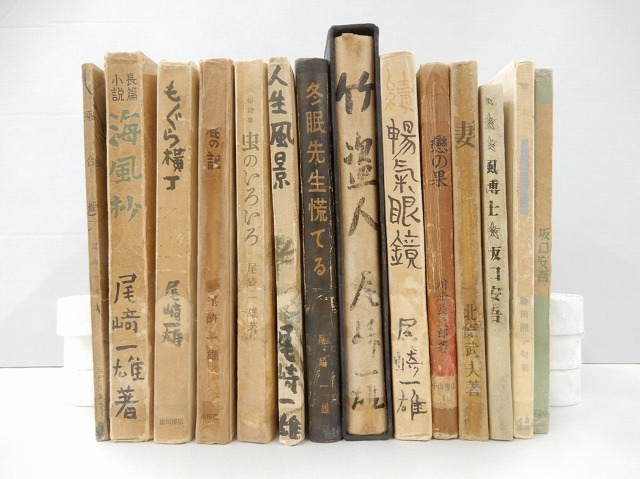 長篇
小説
海風抄
尾﨑一雄著
もぐら横丁
尾﨑一雄
の記
尾﨑一雄
虫のいろいろ
尾﨑一雄著
人生風景
尾崎一雄
冬眠先生慌てる
尾崎一雄
竹盗人
尾崎一雄
続
暢氣眼鏡
尾崎一雄
戀の果
妻
武夫著
風博士
坂口安吾
句集
坂口安吾